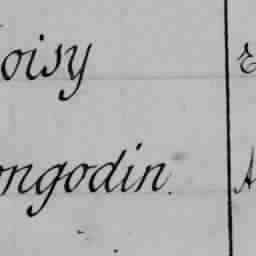 oisy E
ongodin. A